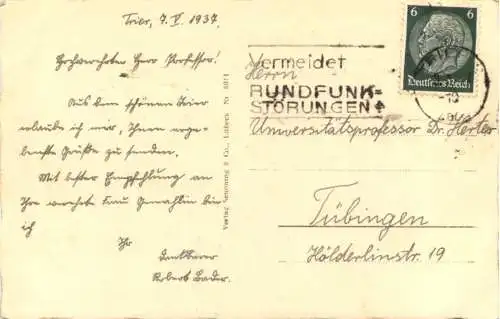 Trier, 7. V. 1937
Hochverehrter Herr Professor!
Aus dem schönen Trier
erlaube ich mir, Ihnen erge-
benste Grüße zu senden.
Mit bester Empfehlung an
Ihre verehrte Frau Gemahlin bin
ich
Ihr
dankbarer
Robert Bader.
Verlag Schöning & Co., Lübeck Nr
6
6
Deutsches Reich
Vermeidet
RUNDFUNK-
STÖRUNGEN
Herrn
Universitätsprofessor Dr. Herter
Tübingen
Hölderlinstr. 19